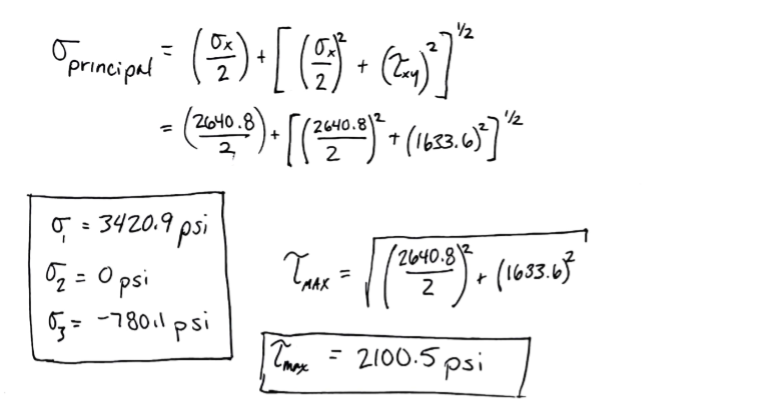 σ_principal = (σx/2) + [(σx/2)² + (τxy)²]^1/2
= (2640.8/2) + [(2640.8/2)² + (1633.6)²]^1/2
σ₁ = 3420.9 psi
σ₂ = 0 psi
σ₃ = -780.1 psi
τ_MAX = √((2640.8/2)² + (1633.6)²)
τ_max = 2100.5 psi